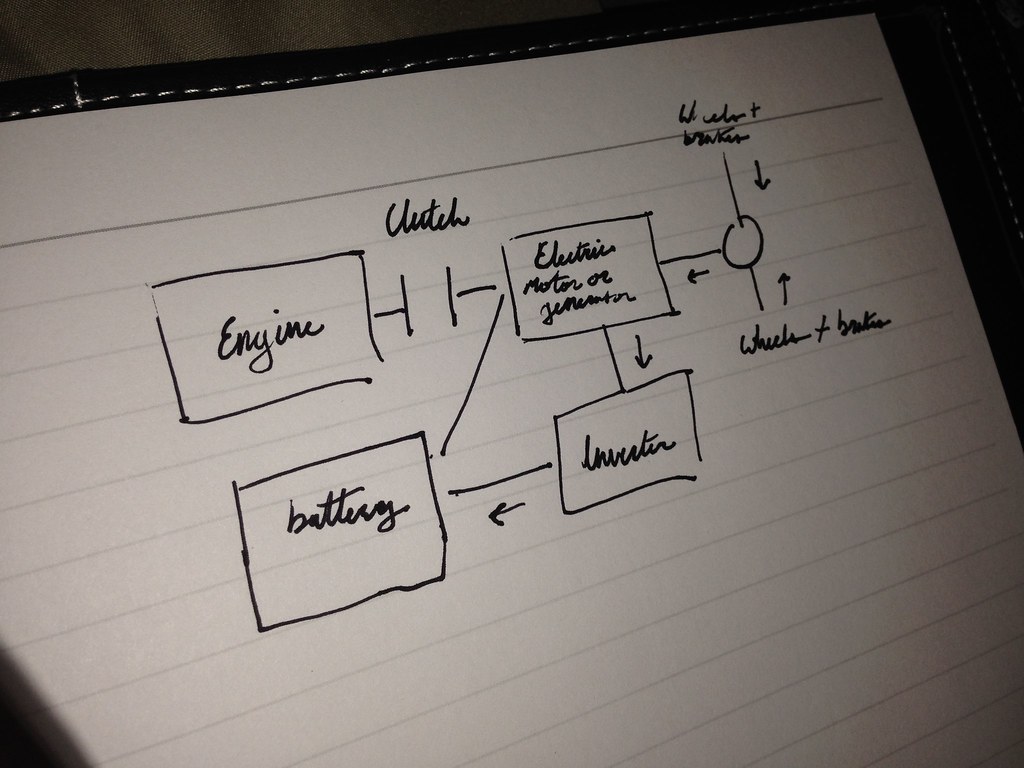 Wheels +
brakes
Clutch
Electric
motor or
generator
Engine
Wheels + brakes
Inverter
battery